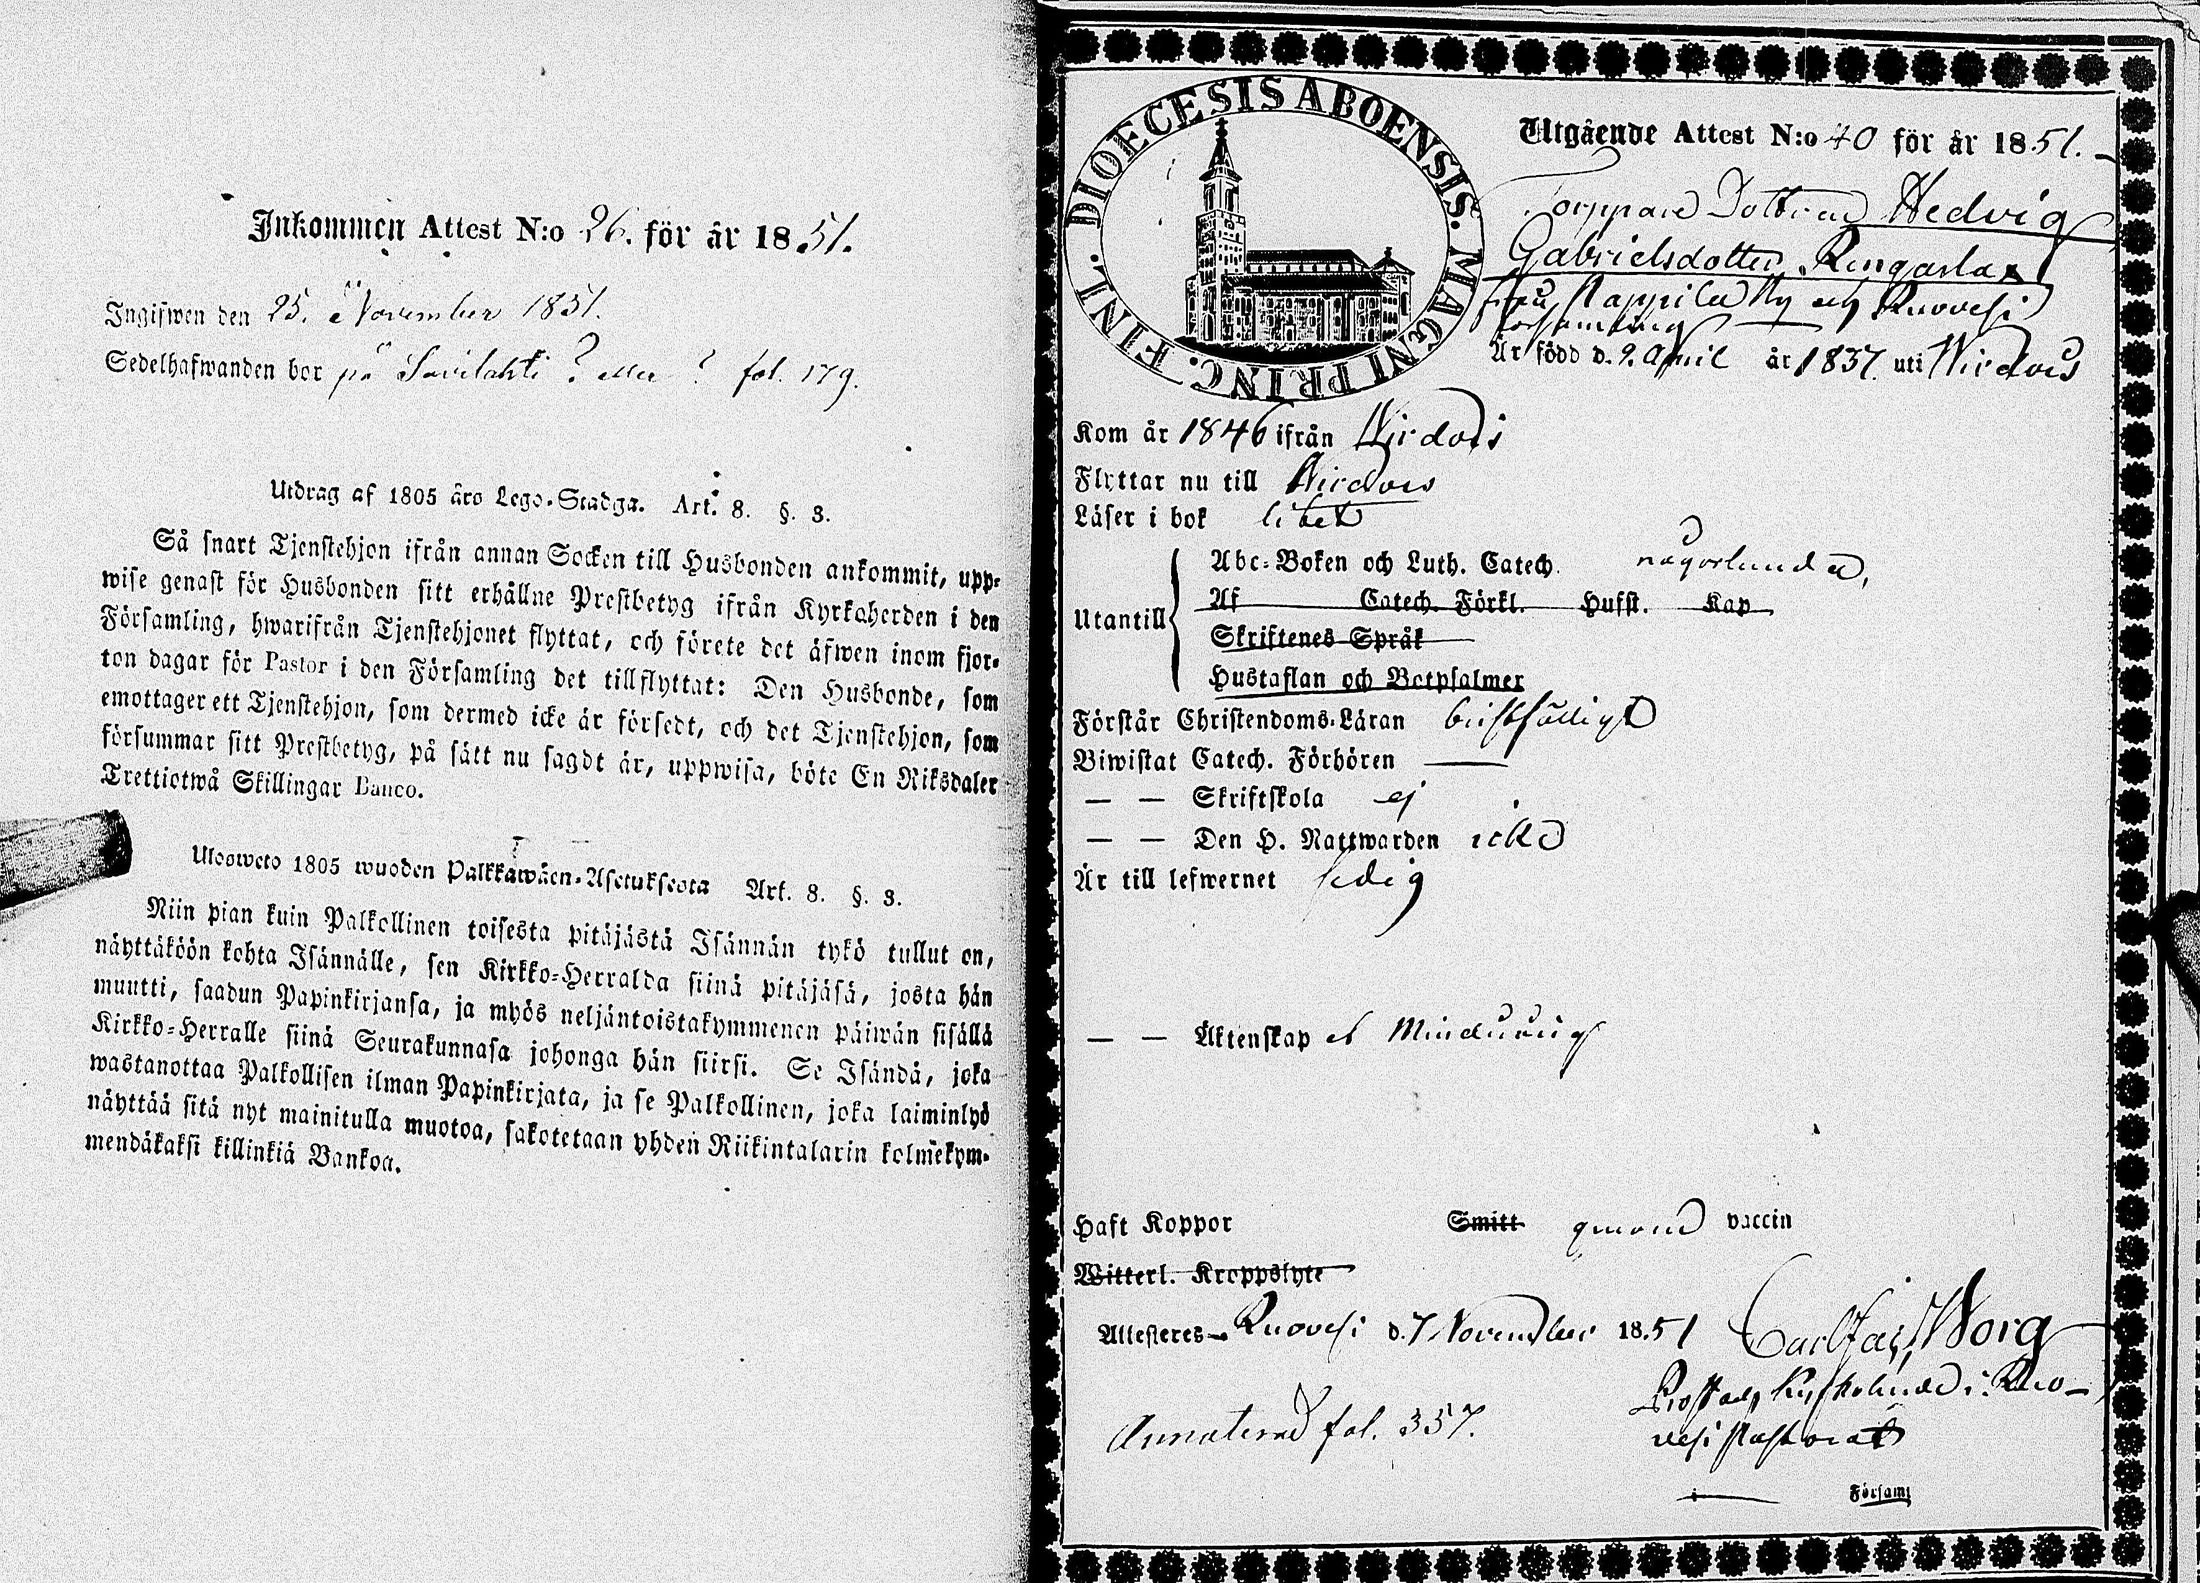 Inkommen Attest N:o 26. för år 1851.
Ingifwen den 25. November 1851.
Sedelhafwanden bor på Savilahti ? eller ? fol. 179.
Utdrag af 1805 års Lego-Stadga. Art. 8. §. 3.
Så snart Tjenstehjon ifrån annan Socken till Husbonden ankommit, upp-
wise genast för Husbonden sitt erhållne Prestbetyg ifrån Kyrkoherden i den
Församling, hwarifrån Tjenstehjonet flyttat, och förete det äfwen inom fjor-
ton dagar för Pastor i den Församling det tillflyttat: Den Husbonde, som
emottager ett Tjenstehjon, som dermed icke är försedt, och det Tjenstehjon, som
försummar sitt Prestbetyg, på sätt nu sagdt är, uppwisa, böte En Riksdaler
Trettiotwå Skillingar Banco.
Ulosweto 1805 wuoden Palkkawäen-Asetuksesta Art. 8. §. 3.
Niin pian kuin Palkollinen toisesta pitäjästä Isännän tykö tullut on,
näyttäköön kohta Isännälle, sen Kirkko-Herralda siinä pitäjäsä, josta hän
muutti, saadun Papinkirjansa, ja myös neljäntoistakymmenen päiwän sisällä
Kirkko-Herralle siinä Seurakunnasa johonga hän siirsi. Se Isändä, joka
wastanottaa Palkollisen ilman Papinkirjata, ja se Palkollinen, joka laiminlyö
näyttää sitä nyt mainitulla muotoa, sakotetaan yhden Riikintalarin kolmekym-
mendäkaksi killinkiä Bankoa.
DIOECESIS ABOENSIS. MAGNI PRINC. FINL.
Utgående Attest N:o 40 för år 1851.
Torppare Dottren Hedvig
Gabrielsdotter Rengasla
från Kappila by af Ruovesi
församling
Är född d. 9. April år 1837. uti Wirdois
Kom år 1846 ifrån Wirdois
Flyttar nu till Wirdois
Läser i bok litet
Utantill
Abc-Boken och Luth. Catech. någorlunda,
Af Catech. Förkl. Hufst. Kap
Skriftenes Språk
Hustaflan och Botpsalmer
Förstår Christendoms-Läran bristfälligt
Biwistat Catech. Förhören
— — Skriftskola ej
— — Den H. Nattwarden icke
Är till lefwernet ledig
— — Äktenskap Minderårig
Haft Koppor Smitt genom vaccin
Witterl. Kroppslyte
Attesteres Ruovesi d. 7 November 1851 Carl Worg
Prost och Kyrkoherde i Ruo-
vesi Pastorat
Annoterad fol. 357.
i Församl